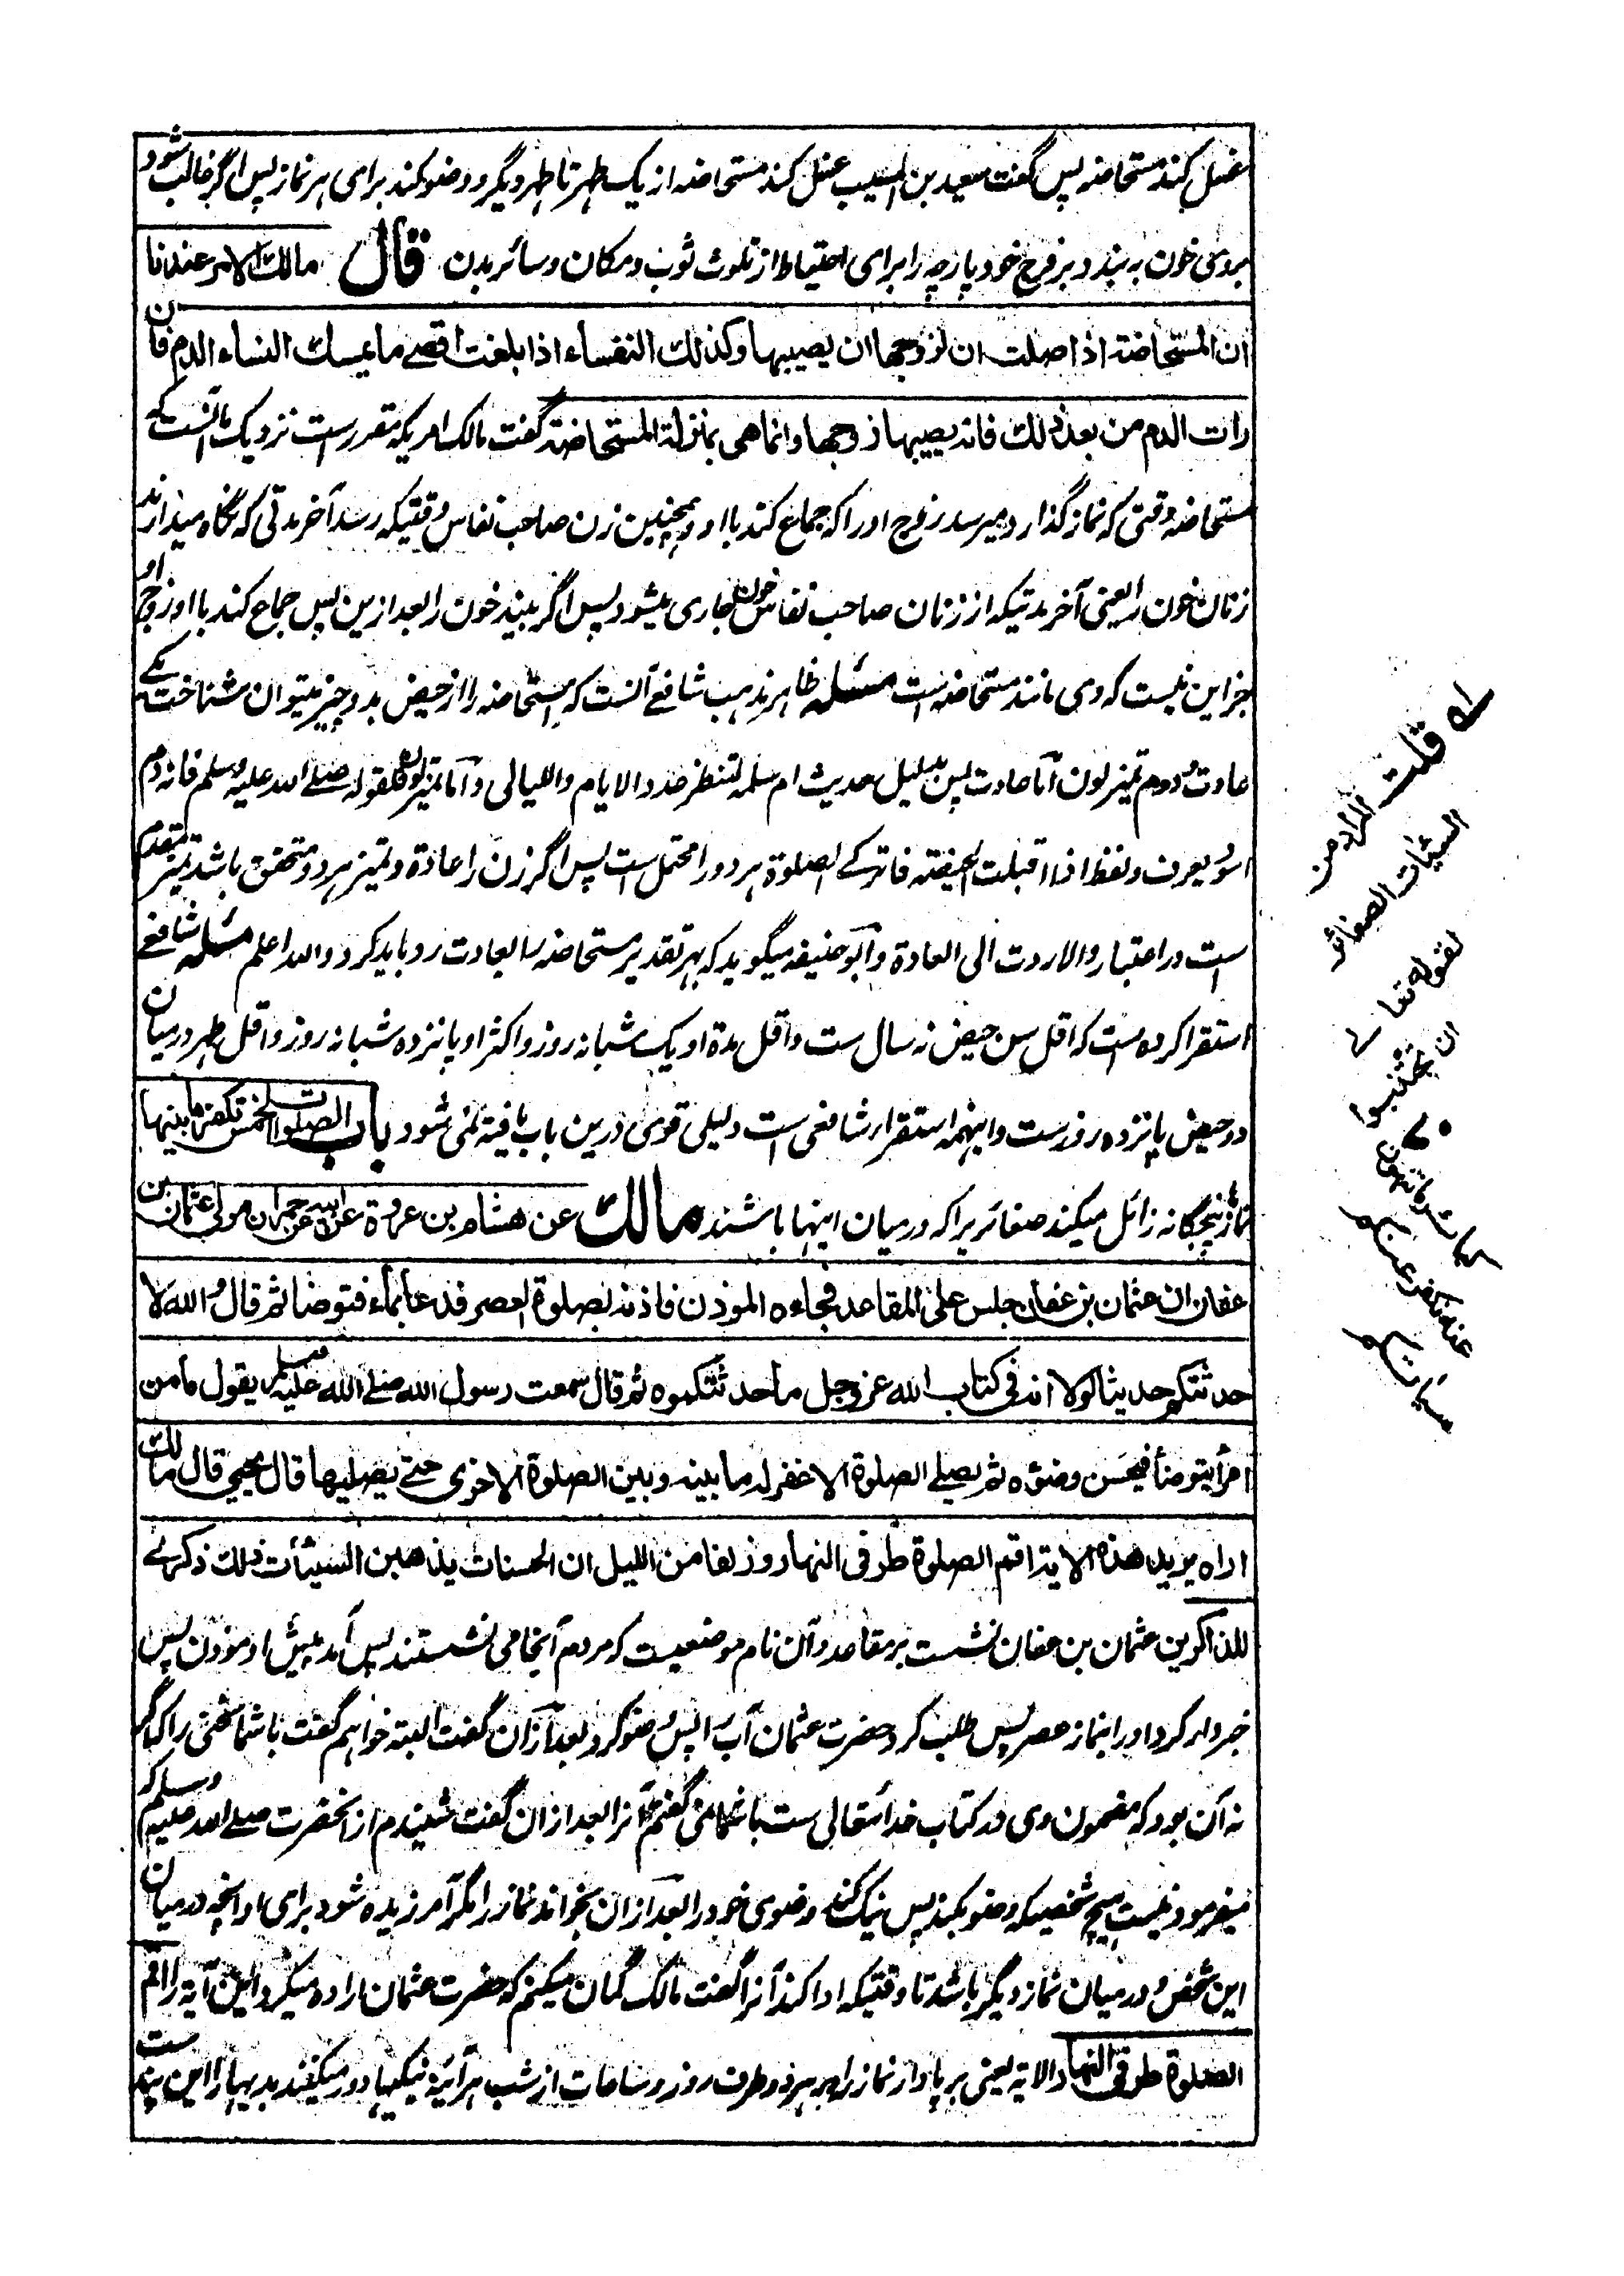 غسل کند مستحاضه پس گفت سعید بن المسیب غسل کند مستحاضه از یک طهر تا طهر دیگر و وضو کند برای هر نماز پس اگر غالب شود
بروی خون به بندد بر فرج خود پارچه را برای احتیاط از تلوث ثوب و مکان و سائر بدن قال مالك الامر عندنا
ان المستحاضة اذا صلت ان لزوجها ان یصیبها وکذلك النفساء اذا بلغت اقصے ما یمسك النساء الدم فان
رات الدم من بعد ذلك فانه یصیبها زوجها وانما هی بمنزلة المستحاضة گفت مالک امریکه مقرر است نزدیک ما آنست که
مستحاضه وقتی که نماز گذارد میرسد زوج او را که جماع کند با او و همچنین زن صاحب نفاس وقتیکه رسد آخر مدتی که نگاه میدارند
زنان خون را یعنی آخر مدتیکه از زنان صاحب نفاس خون جاری میشود پس اگر بیند خون را بعد ازین پس جماع کند با او زوج او
جز این نیست که وی مانند مستحاضه است مسئله ظاهر مذهب شافعے آنست که مستحاضه را از حیض بدو چیز میتوان شناخت یکے
عادت و دوم تمیز لون اما عادت پس بدلیل حدیث ام سلمه لتنظر عدد الایام واللیالی و اما تمیز لون فلقوله صلے الله علیه وسلم فانه دم
اسود یعرف و لفظ اذا اقبلت الحیضة فاترکے الصلوة هر دو را محتمل است پس اگر زن را عادة و تمیز هر دو متحقق باشد تمیز مقدم
است در اعتبار والا ردت الی العادة و ابو حنیفه میگوید که بهر تقدیر مستحاضه را بعادت رد باید کرد والله اعلم مسئله شافعے
استقرا کرده است که اقل سن حیض نه سال ست و اقل مدة او یک شبانه روز و اکثر او پانزده شبانه روز و اقل طهر در میان
دو حیض پانزده روز ست و اینهمه استقرار شافعی است دلیلی قوی درین باب یافته نمی شود باب الصلوات الخمس تکفر ما بینها
نماز پنجگانه زائل میکند صغائریرا که در میان اینها باشند مالك عن هشام بن عروة عن ابیه عن حمران مولی عثمان بن
عفان ان عثمان بن عفان جلس علی المقاعد فجاءه الموذن فاذنه بصلوة العصر فدعا بماء فتوضا ثم قال والله لا
حدثنکم حدیثا لولا انه فی کتاب الله عز وجل ما حدثتکموه ثم قال سمعت رسول الله صلے الله علیه وسلم یقول ما من
امرأ یتوضأ فیحسن وضوءه ثم یصلے الصلوة الا غفر له ما بینه وبین الصلوة الاخری حتے یصلیها قال یحیی قال مالك
اراه یرید هذه الایة اقم الصلوة طرفی النهار وزلفا من اللیل ان الحسنات یذهبن السیئات ذلك ذکرے
للذاکرین عثمان بن عفان نشست بر مقاعد و آن نام موضعیست که مردم آنجا می نشستند پس آمد پیش او موذن پس
خبردار کرد او را بنماز عصر پس طلب کرد حضرت عثمان آب را پس وضو کرد بعد ازان گفت البته خواهم گفت با شما سخنی را که اگر
نه آن بود که مضمون وی در کتاب خدا تعالی ست با شما نمی گفتم آنرا بعد ازان گفت شنیدم از آنحضرت صلے الله علیه وسلم که
میفرمود نیست هیچ شخصیکه وضو بکند پس نیک کند وضوی خود را بعد ازان بخواند نماز را مگر آمرزیده شود برای او آنچه در میان
این شخص و درمیان نماز دیگر باشد تا وقتیکه ادا کند آنرا گفت مالک گمان میکنم که حضرت عثمان اراده میکرد این آیه را اقم
الصلوة طرفی النهار الایه یعنی برپا دار نماز را بهر دو طرف روز و ساعات از شب هر آئینه نیکیها دور میکنند بدیها را این پند ست
له قلت المراد من
السیئات الصغائر
لقوله تعالے
ان تجتنبوا
کبائر ما تنهون
عنه نکفر عنکم
سیئاتکم